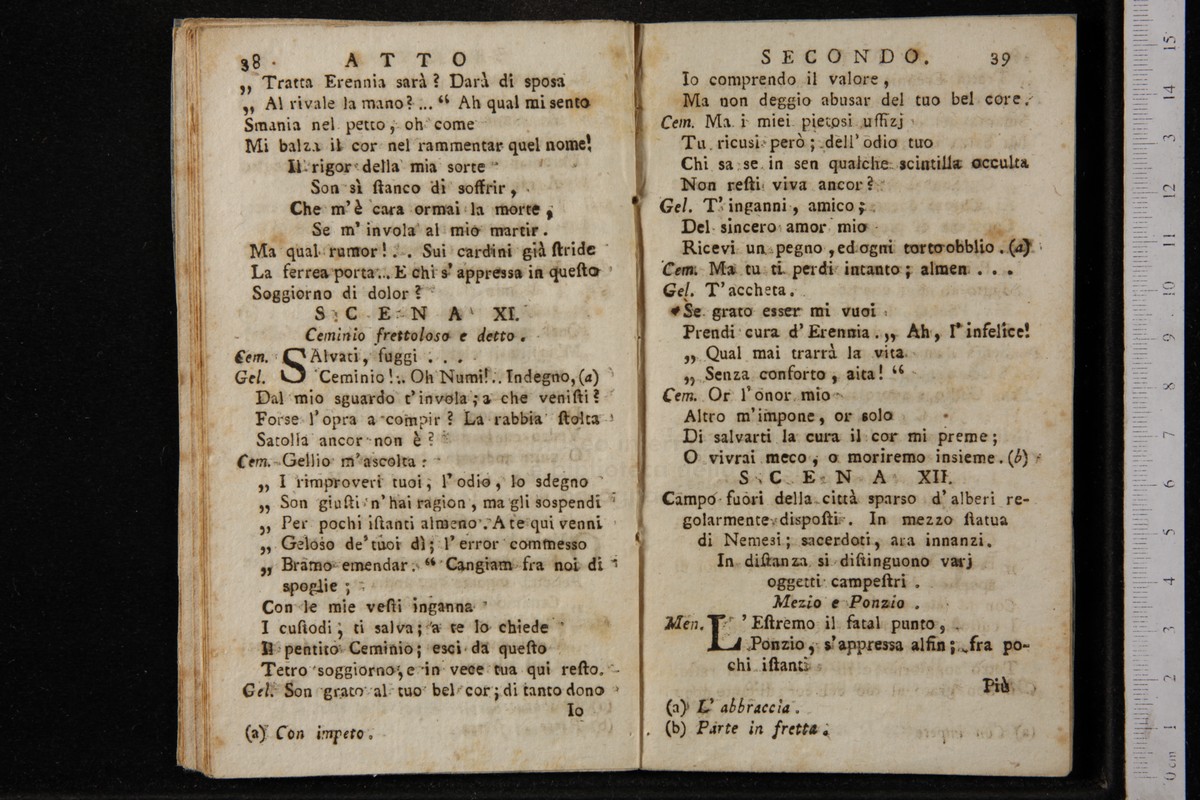 38 ATTO
„ Tratta Erennia sarà? Darà di sposa
„ Al rivale la mano? ... “ Ah qual mi sento
Smania nel petto, oh come
Mi balza il cor nel rammentar quel nome!
Il rigor della mia sorte
Son sì ſtanco di soffrir,
Che m'è cara ormai la morte,
Se m' invola al mio martir.
Ma qual rumor!.. Sui cardini già ſtride
La ferrea porta... E chi s' appressa in queſto
Soggiorno di dolor?
SCENA XI.
Ceminio frettoloso e detto.
Cem. SAlvati, fuggi ...
Gel. Ceminio!.. Oh Numi!.. Indegno, (a)
Dal mio sguardo t'invola; a che veniſti?
Forse l'opra a compir? La rabbia ſtolta
Satolla ancor non è?
Cem. Gellio m'ascolta:
„ I rimproveri tuoi, l'odio, lo sdegno
„ Son giuſti: n'hai ragion, ma gli sospendi
„ Per pochi iſtanti almeno. A te qui venni
„ Geloso de' tuoi dì; l'error commesso
„ Bramo emendar. “ Cangiam fra noi di
spoglie;
Con le mie veſti inganna
I cuſtodi, ti salva; a te lo chiede
Il pentito Ceminio; esci da queſto
Tetro soggiorno, e in vece tua qui reſto.
Gel. Son grato al tuo bel cor; di tanto dono
Io
(a) Con impeto.
SECONDO. 39
Io comprendo il valore,
Ma non deggio abusar del tuo bel core.
Cem. Ma i miei pietosi uffizj
Tu ricusi però; dell' odio tuo
Chi sa se in sen qualche scintilla occulta
Non reſti viva ancor?
Gel. T' inganni, amico;
Del sincero amor mio
Ricevi un pegno, ed ogni torto obblio. (a)
Cem. Ma tu ti perdi intanto; almen ...
Gel. T'accheta.
Se grato esser mi vuoi
Prendi cura d'Erennia. „ Ah, l'infelice!
„ Qual mai trarrà la vita
„ Senza conforto, aita! “
Cem. Or l'onor mio
Altro m'impone, or solo
Di salvarti la cura il cor mi preme;
O vivrai meco, o moriremo insieme. (b)
SCENA XII.
Campo fuori della città sparso d'alberi re-
golarmente dispoſti. In mezzo ſtatua
di Nemesi; sacerdoti, ara innanzi.
In diſtanza si diſtinguono varj
oggetti campeſtri.
Mezio e Ponzio.
Men. L'Eſtremo il fatal punto,
Ponzio, s'appressa alfin; fra po-
chi iſtanti
Più
(a) L' abbraccia.
(b) Parte in fretta.
15
14
13
12
11
10
9
8
7
6
5
4
3
2
1
0 cm